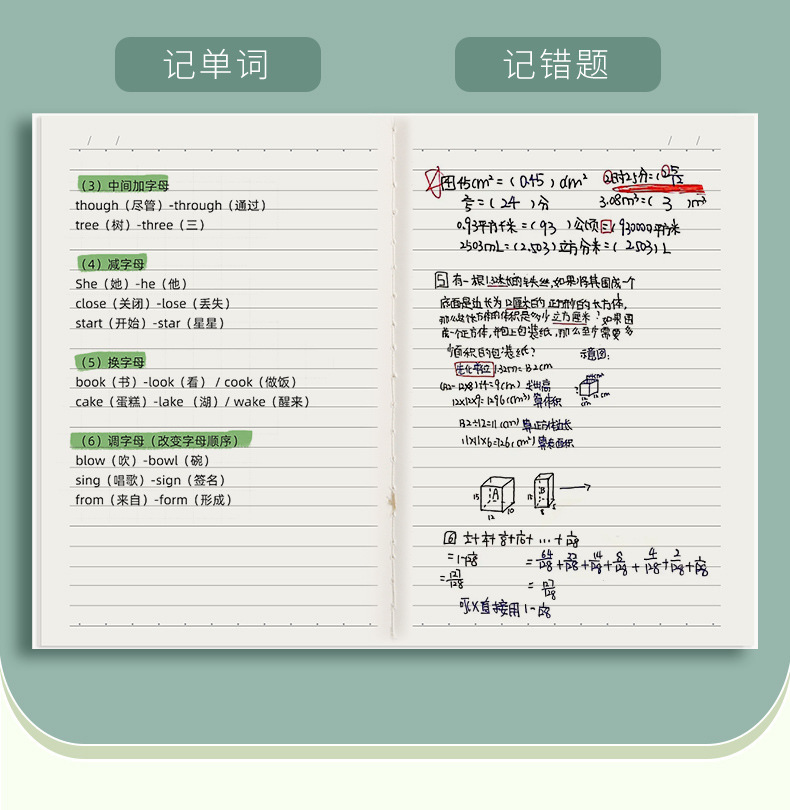 记单词
记错题
/ /
(3) 中间加字母
though（尽管）-through（通过）
tree（树）-three（三）
(4) 减字母
She（她）-he（他）
close（关闭）-lose（丢失）
start（开始）-star（星星）
(5) 换字母
book（书）-look（看） / cook（做饭）
cake（蛋糕）-lake （湖）/ wake（醒来）
(6) 调字母（改变字母顺序）
blow（吹）-bowl（碗）
sing（唱歌）-sign（签名）
from（来自）-form（形成）
/ /
45cm²=( 0.45 ) dm² 2时25分=(
=( 24 )分 3.08m³=( 3 ) m³
0.93平方千米=( 93 )公顷=( 930000平方米
2503mL=(2.503)立方分米=( 2.503) L
5 有一根1.32米长的铁丝,如果将其围成一个
底面是边长为12厘米的正方形的长方体,
那么这个长方体的体积是多少立方厘米?如果围
成一个正方体,并包上包装纸,那么至少需要多
少面积的包装纸? 示意图:
1.32m=132cm
(132-12×8)÷4=9(cm) 求出高
12×12×9=1296(cm³) 算体积
132÷12=11(cm) 算正方体边长
11×11×6=726(cm²) 算表面积
A
B
12 10
6
=1-1/128 =64/128+32/128+14/128+8/128+4/128+2/128+1/128
=127/128 =127/128
可以直接用1-1/128